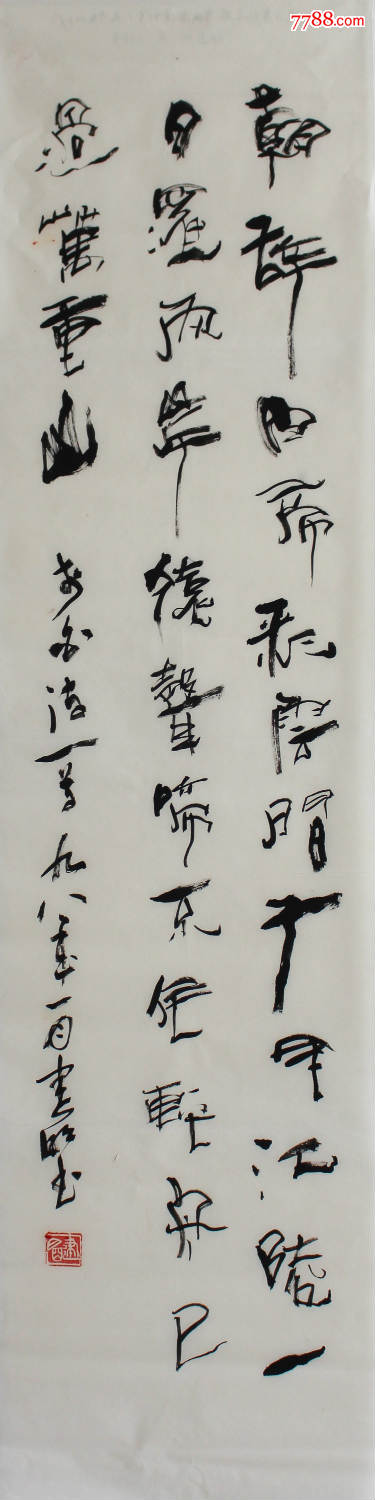 7788.com
朝辭白帝彩雲間千里江陵一
日還兩岸猿聲啼不住輕舟已
過萬重山 李白詩一首 九八年一月